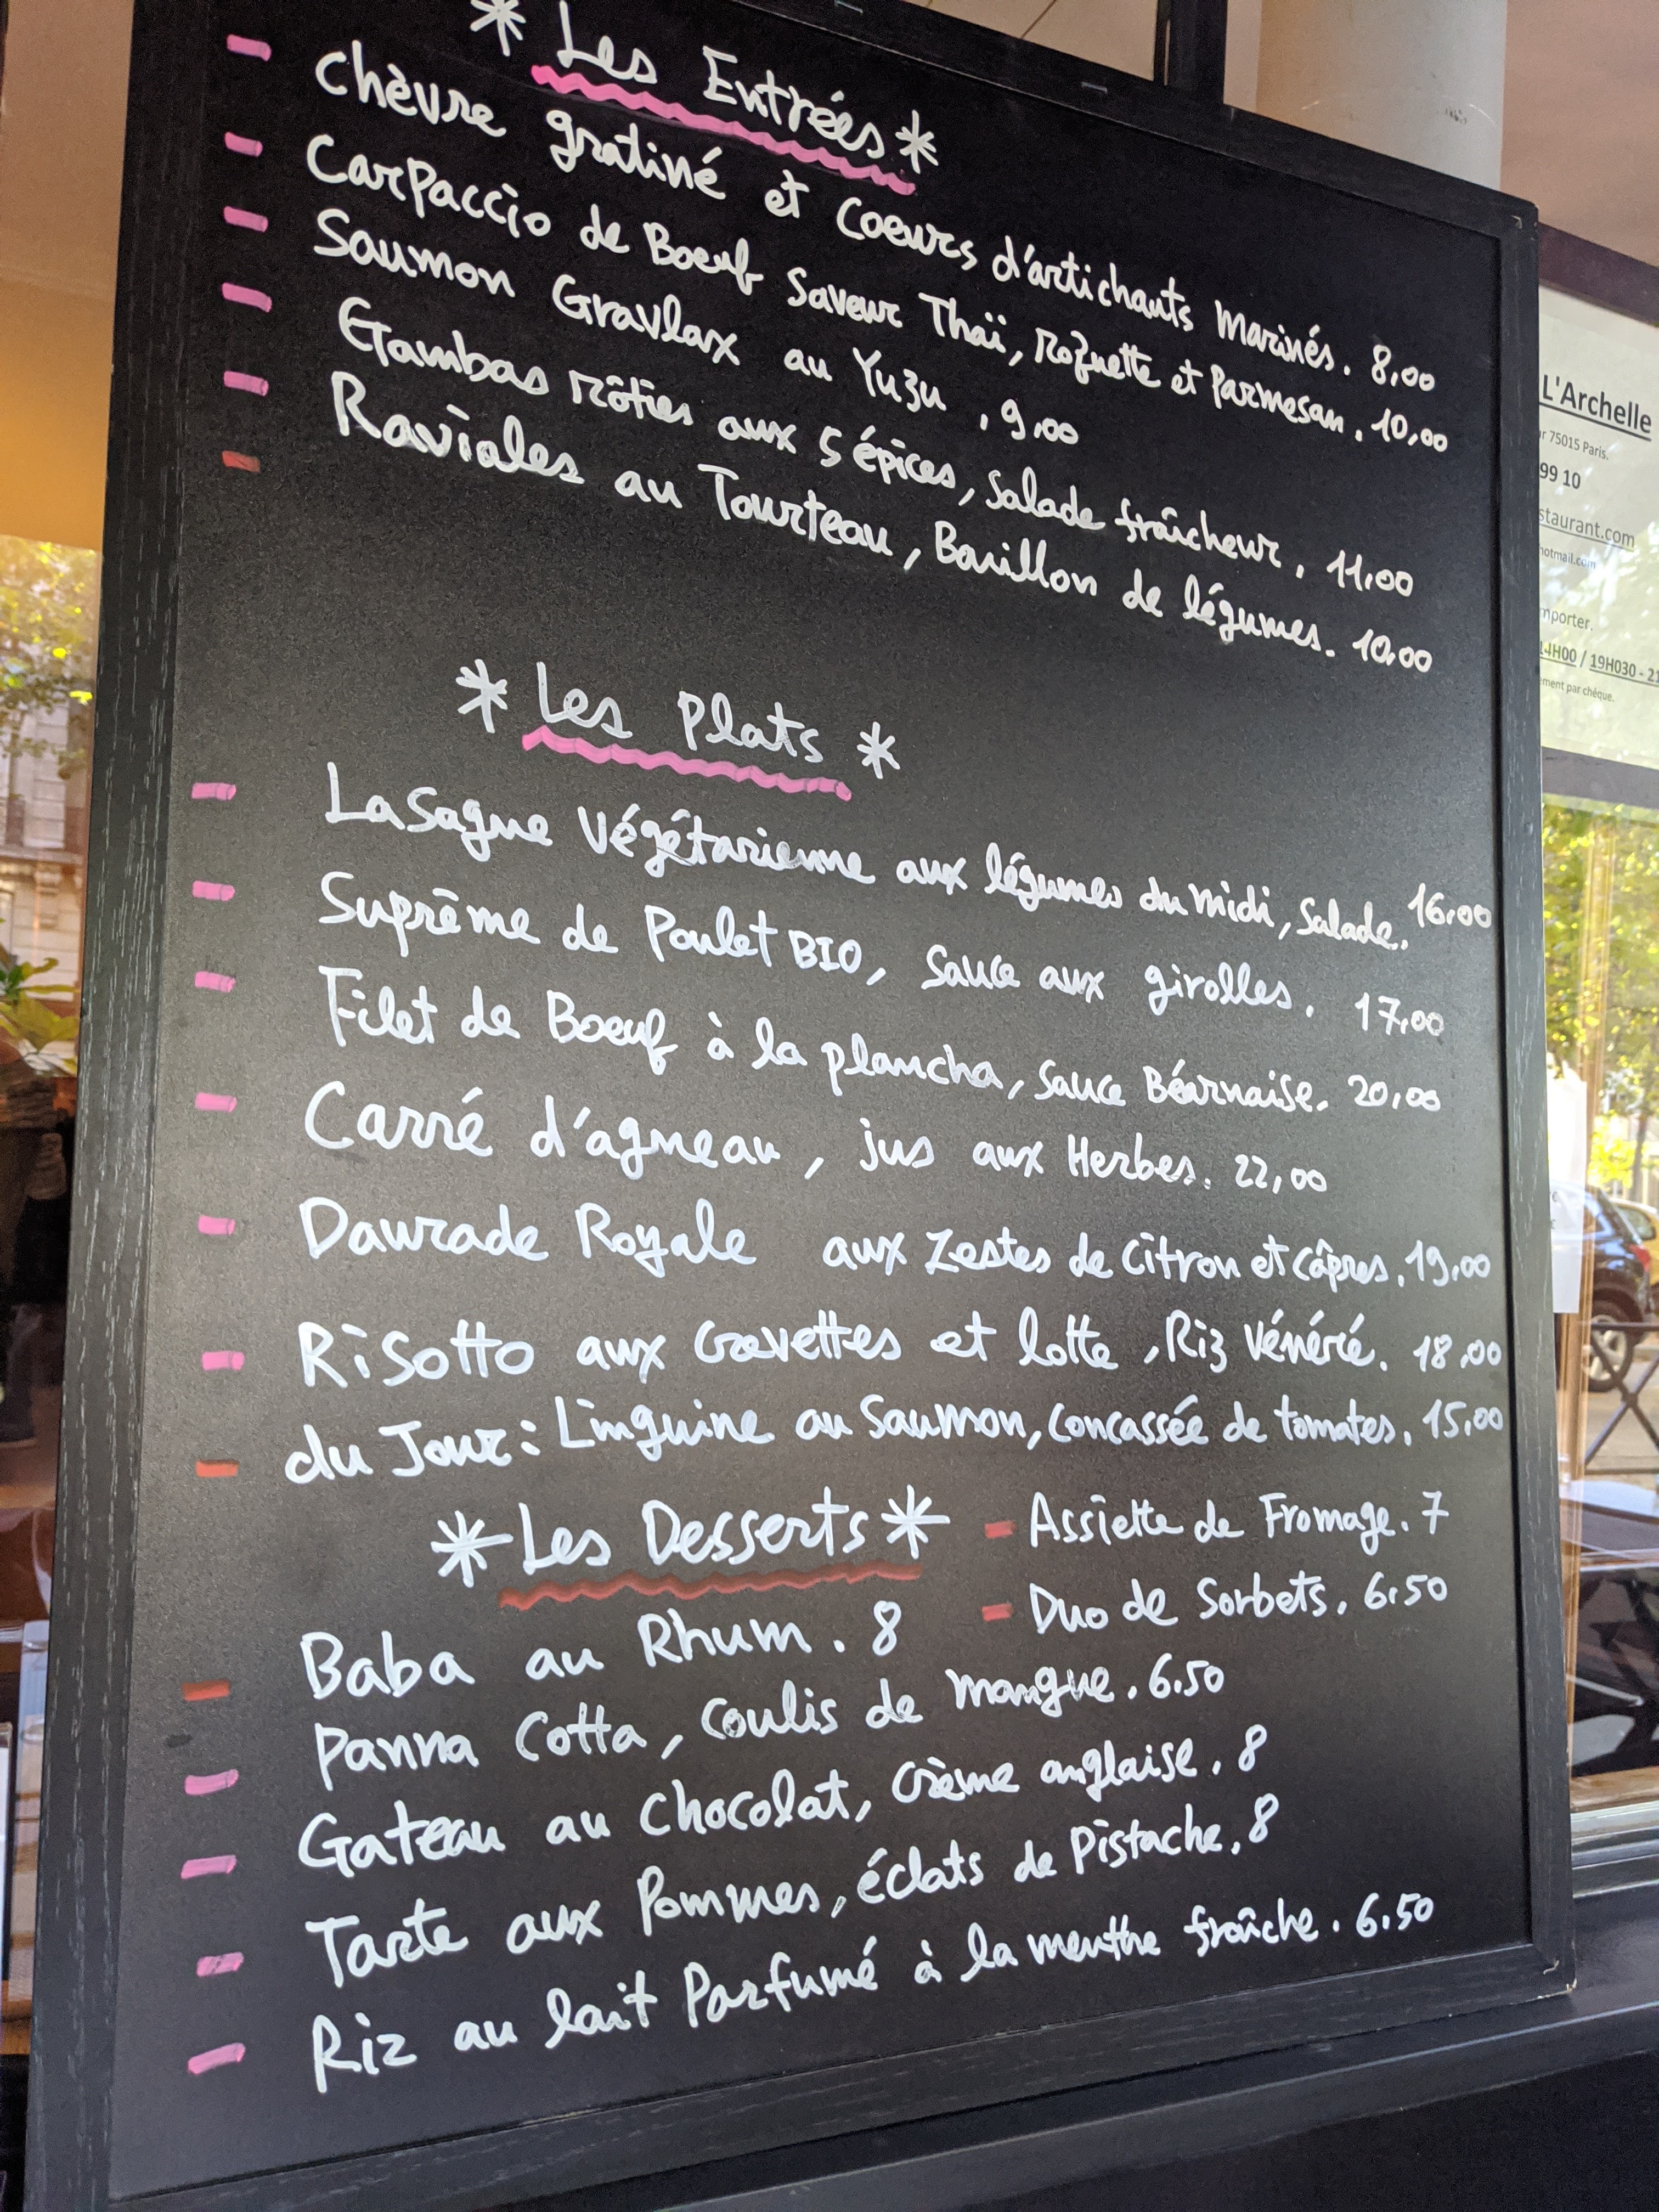 * Les Entrées *
- Chèvre gratiné et Coeurs d'artichauts Marinés. 8,00
- Carpaccio de Boeuf Saveur Thaï, Roquette et Parmesan. 10,00
- Saumon Gravlax au Yuzu . 9,00
- Gambas rôties aux 5 épices, Salade fraîcheur. 11,00
- Ravioles au Tourteau, Bouillon de légumes. 10,00
* Les Plats *
- Lasagne Végétarienne aux légumes du midi, Salade. 16,00
- Suprême de Poulet BIO, Sauce aux girolles. 17,00
- Filet de Boeuf à la plancha, Sauce Béarnaise. 20,00
- Carré d'agneau, jus aux Herbes. 22,00
- Daurade Royale aux Zestes de Citron et Câpres. 19,00
- Risotto aux Crevettes et lotte, Riz Vénéré. 18,00
- du Jour: Linguine au Saumon, Concassée de tomates. 15,00
* Les Desserts *
- Assiette de Fromage. 7
- Duo de Sorbets. 6.50
- Baba au Rhum. 8
- Panna Cotta, Coulis de mangue. 6.50
- Gateau au Chocolat, Crème anglaise. 8
- Tarte aux Pommes, éclats de Pistache. 8
- Riz au lait Parfumé à la menthe fraîche. 6.50
L'Archelle
75015 Paris.
99 10
staurant.com
hotmail.com
mporter.
14H00 / 19H030 - 21
ement par chéque.